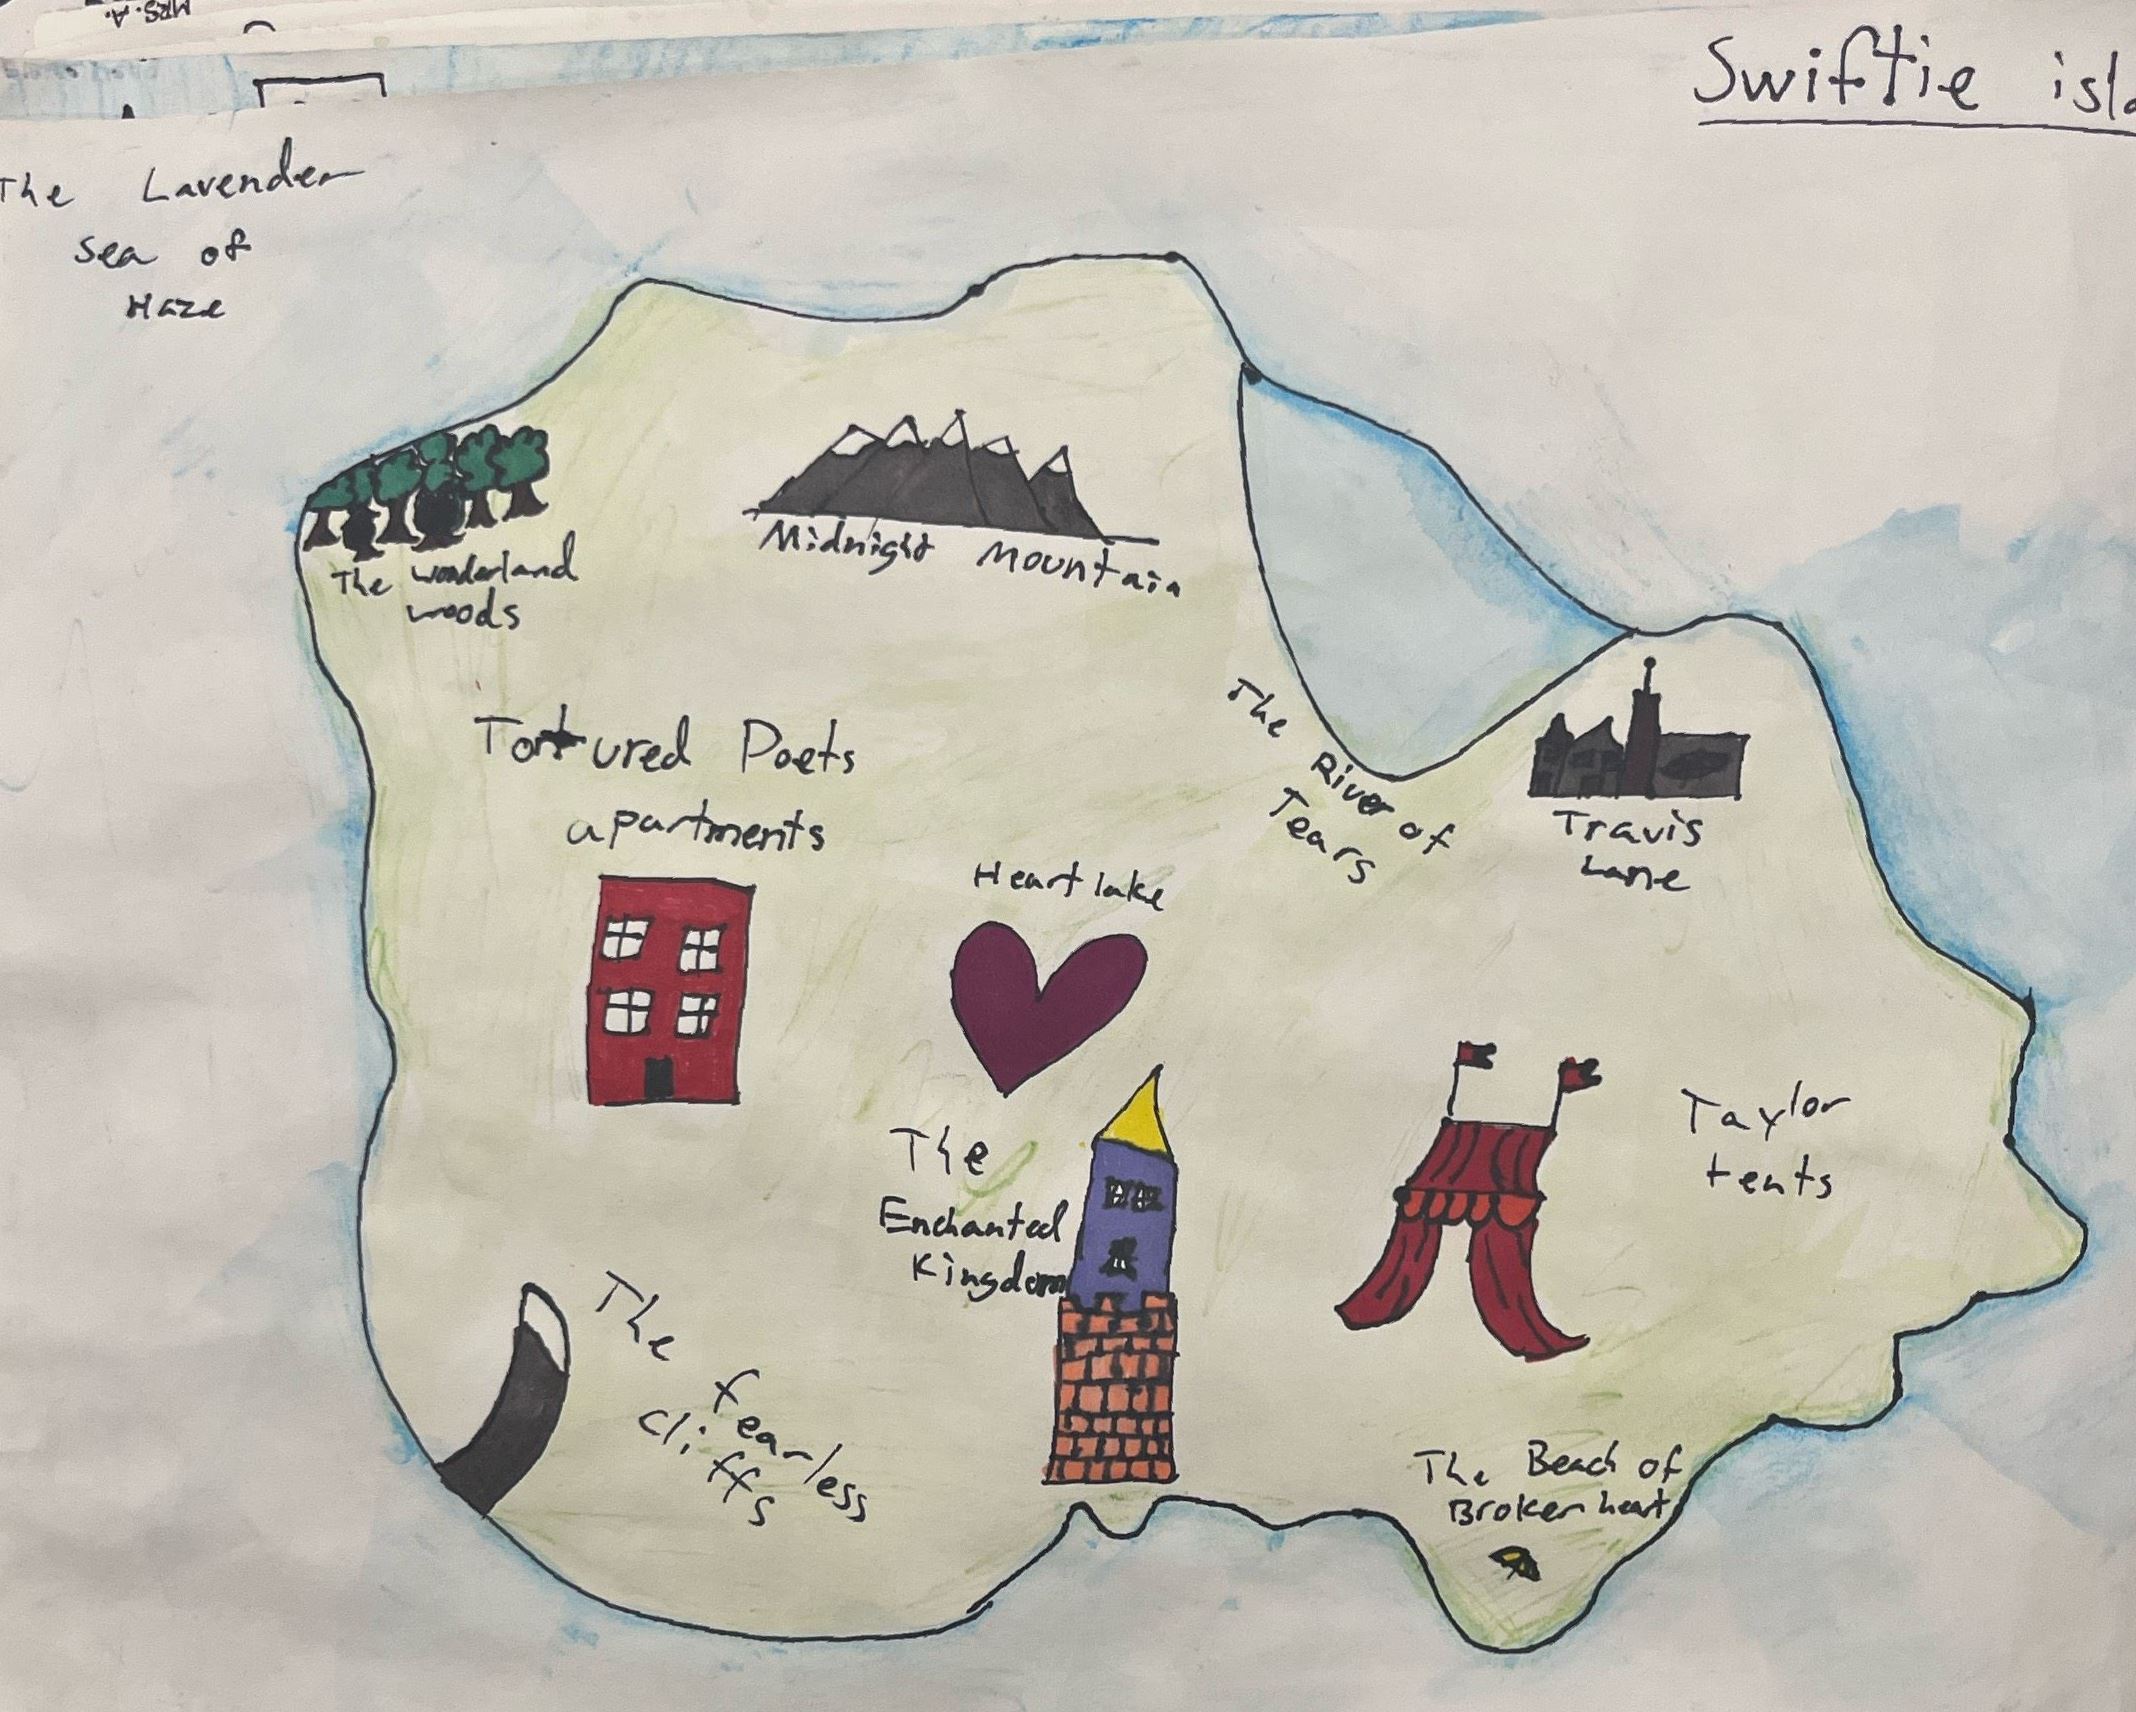 MRS. A.
Swiftie isla
The Lavender
Sea of
Haze
The wonderland
woods
Midnight Mountain
The
River of
Tears
Travis
Lane
Tortured Poets
apartments
Heart lake
The
Enchanted
Kingdom
Taylor
tents
The
Fearless
Cliffs
The Beach of
Broken heart